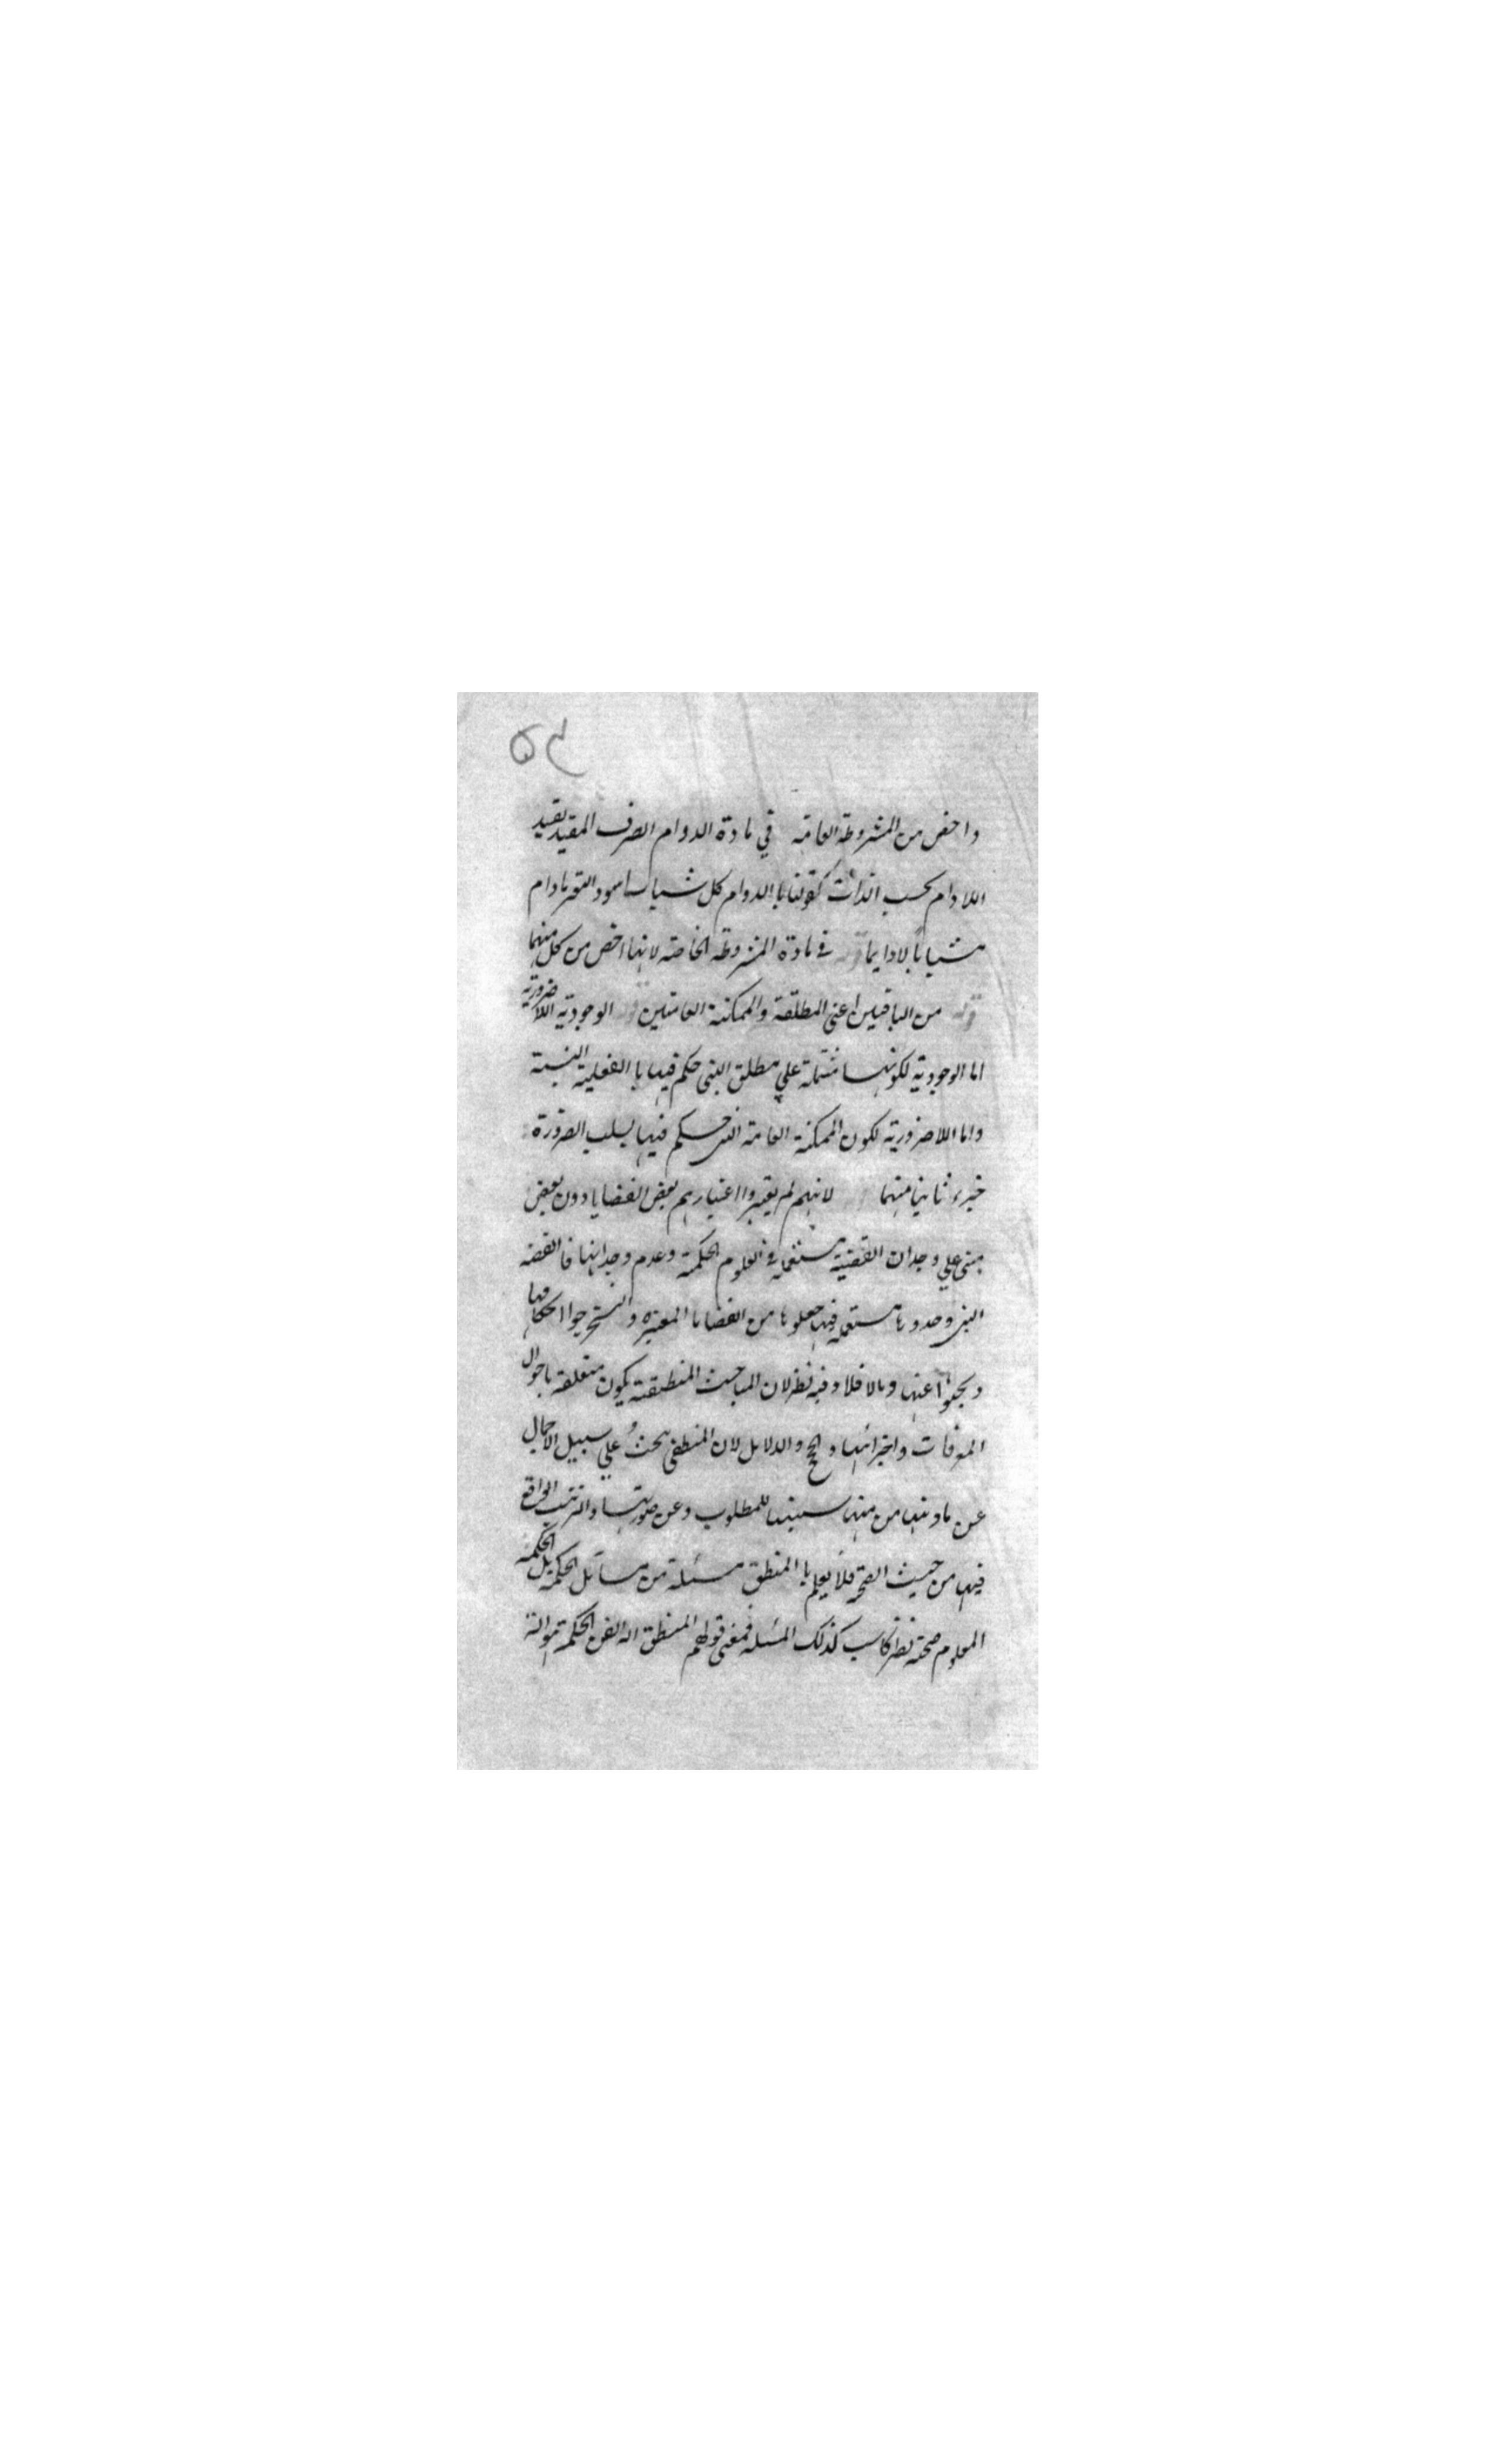 ۵۹
واخص من المشروطة العامة في مادة الدوام الصرف المقيد بقيد
اللادام بحسب الذات كقولنا بالدوام كل شباب اسود الشعر مادام
شبابا لادايما قوله في مادة المشروطة الخاصة لانها اخص من كل منهما
قوله من الباقيين اعنى المطلقة والممكنة العامتين قوله الوجودية اللاضرورية
اما الوجودية لكونها مشتملة علي مطلق التى حكم فيها با الفعلية النسبة
واما اللاضرورية لكون الممكنة العامة التى حكم فيها بسلب الضرورة
جزء ثانيا منهما لانهم لم يعتبروا اعتبارهم بعض القضايا دون بعض
مبنى علي وجدان القضية مستعملة في العلوم الحكمة وعدم وجدانها فا القضية
التى وجدوها مستعملة فيها جعلوها من القضايا المعتبرة واستخرجوا احكامها
وبحثوا عنها ومالا فلا وفيه نظر لان المباحث المنطقية يكون متعلقة باحوال
المعرفات واجزائها والحجج والدلايل لان المنطقى يبحث علي سبيل الاجمال
عن مادتها من للمطلوب وعن صورتها والترتيب الواقع
فيها من حيث الصحة فلا يعلم با المنطق مسئلة من مسائل الحكمة بل الحكمة
المعلوم صحته نظر كاسب كذلك المسئلة فمعنى قولهم المنطق اله الفن الحكمة